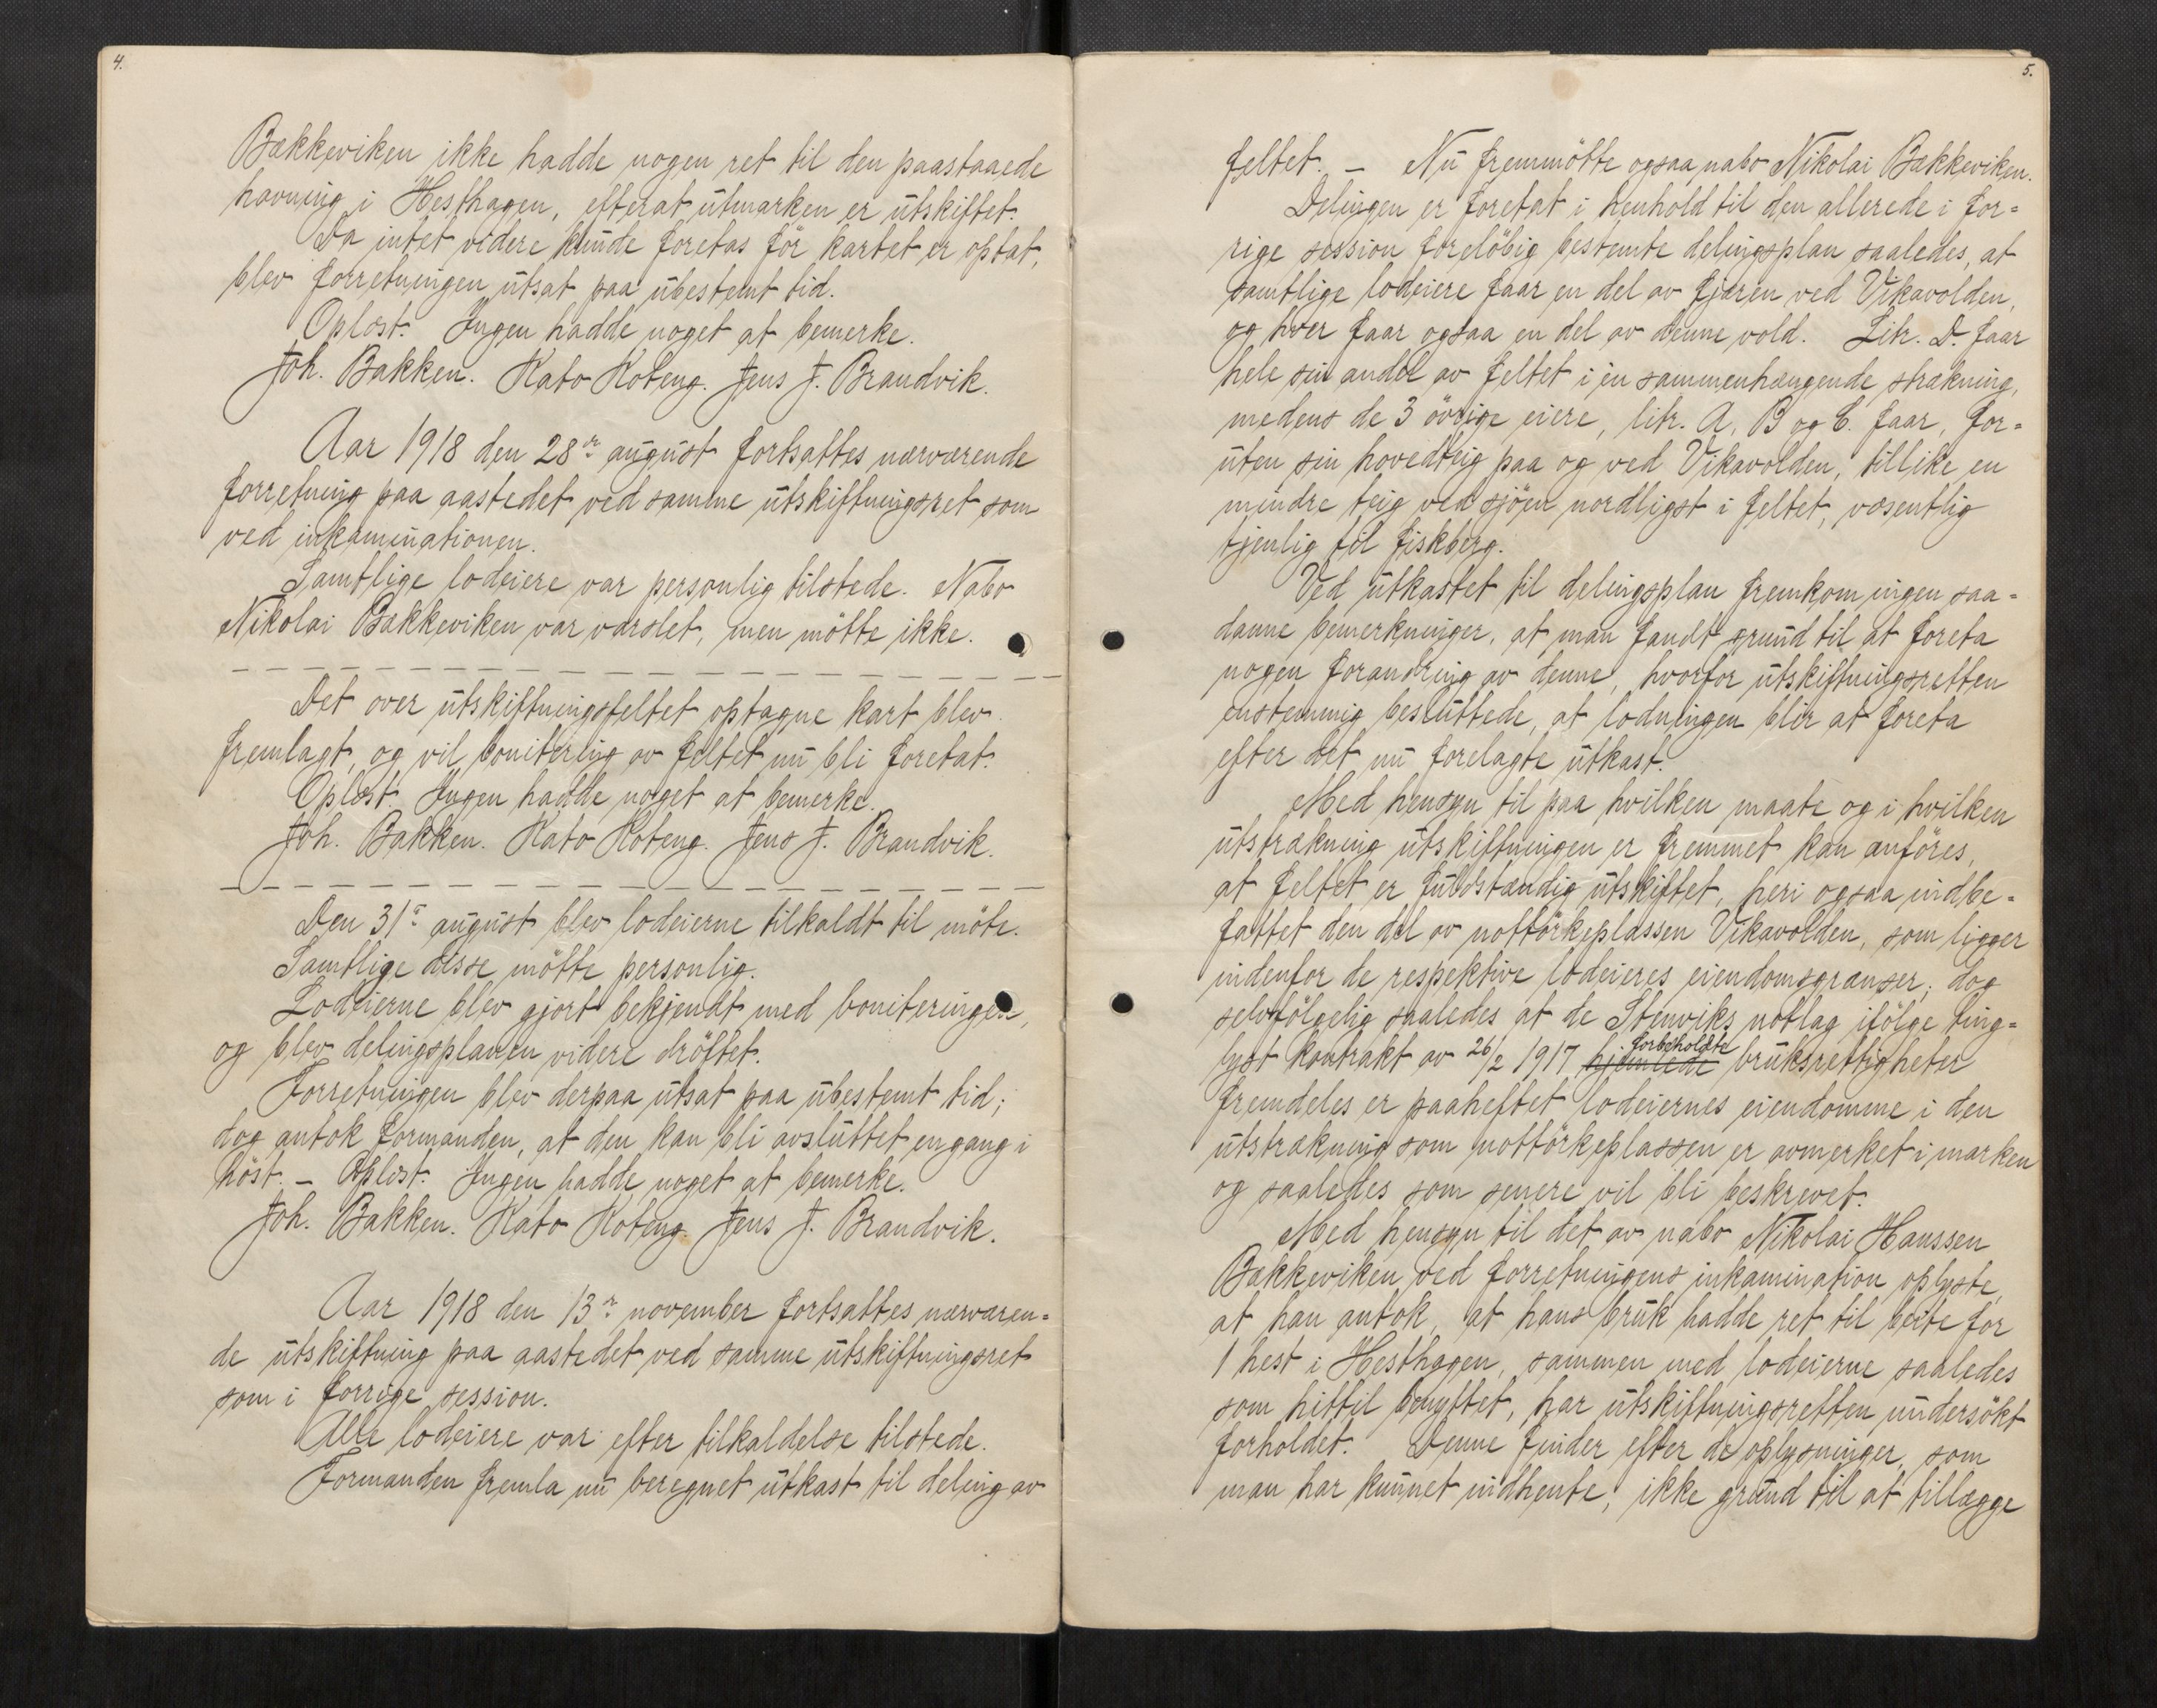 4.
Bækkeviken ikke hadde nogen ret til den paastaaede
havning i Hesthagen, efterat utmarken er utskiftet.
Da intet videre kunde foretas før kartet er optat,
blev forretningen utsat paa ubestemt tid.
Oplæst. Ingen hadde noget at bemerke.
Joh. Bakken. Kato Koteng. Jens J. Brandvik.
Aar 1918 den 28de august fortsattes nærværende
forretning paa aastedet ved samme utskiftningsret som
ved inkaminationen.
Samtlige lodeiere var personlig tilstede. Nabo
Nikolai Bækkeviken var varslet, men møtte ikke.
Det over utskiftningsfeltet optagne kart blev
fremlagt, og vil bonitering av feltet nu bli foretat.
Oplæst. Ingen hadde noget at bemerke.
Joh. Bakken. Kato Koteng. Jens J. Brandvik.
Den 31te august blev lodeierne tilkaldt til møte.
Samtlige disse møtte personlig.
Lodeierne blev gjort bekjendt med boniteringen,
og blev delingsplanen videre drøftet.
Forretningen blev derpaa utsat paa ubestemt tid;
dog antok formanden, at den kan bli avsluttet engang i
høst. – Oplæst. Ingen hadde noget at bemerke.
Joh. Bakken. Kato Koteng. Jens J. Brandvik.
Aar 1918 den 13de november fortsattes nærværen=
de utskiftning paa aastedet ved samme utskiftningsret
som i forrige session.
Alle lodeiere var efter tilkaldelse tilstede.
Formanden fremla nu beregnet utkast til deling av
5.
feltet. – Nu fremmøtte ogsaa nabo Nikolai Bækkeviken.
Delingen er foretat i henhold til den allerede i for=
rige session foreløbig bestemte delingsplan saaledes, at
samtlige lodeiere faar en del av fjæren ved Vikavolden,
og hver faar ogsaa en del av denne vold. Litr. D. faar
hele sin andel av feltet i én sammenhængende strækning,
medens de 3 øvrige eiere, litr. A, B og C. faar, for=
uten sin hovedteig paa og ved Vikavolden, tillike en
mindre teig ved sjøen nordligst i feltet, væsentlig
tjenlig til fiskberg.
Ved utkastet til delingsplan fremkom ingen saa=
danne bemerkninger, at man fandt grund til at foreta
nogen forandring av denne, hvorfor utskiftningsretten
enstemmig besluttede, at lodningen blir at foreta
efter det nu forelagte utkast.
Med hensyn til paa hvilken maate og i hvilken
utstrækning utskiftningen er fremmet kan anføres,
at feltet er fuldstændig utskiftet, heri ogsaa indbe=
fattet den del av nottørkeplassen Vikavolden, som ligger
indenfor de respektive lodeieres eiendomsgrænser; dog
selvfølgelig saaledes at de Stenviks notlag ifølge ting=
lyst kontrakt av 26/2 1917 hjemlede forbeholdte bruksrettigheter
fremdeles er paaheftet lodeiernes eiendomme i den
utstrækning som nottørkeplassen er avmerket i marken
og saaledes som senere vil bli beskrevet.
Med hensyn til det av nabo Nikolai Hanssen
Bækkeviken ved forretningens inkamination oplyste,
at han antok, at hans bruk hadde ret til beite for
1 hest i Hesthagen, sammen med lodeierne saaledes
som hittil benyttet, har utskiftningsretten undersøkt
forholdet. Denne finder efter de oplysninger, som
man har kunnet indhente, ikke grund til at tillægge